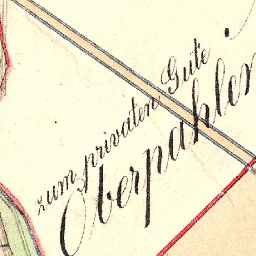 zum privaten Gute
Oberpahlen